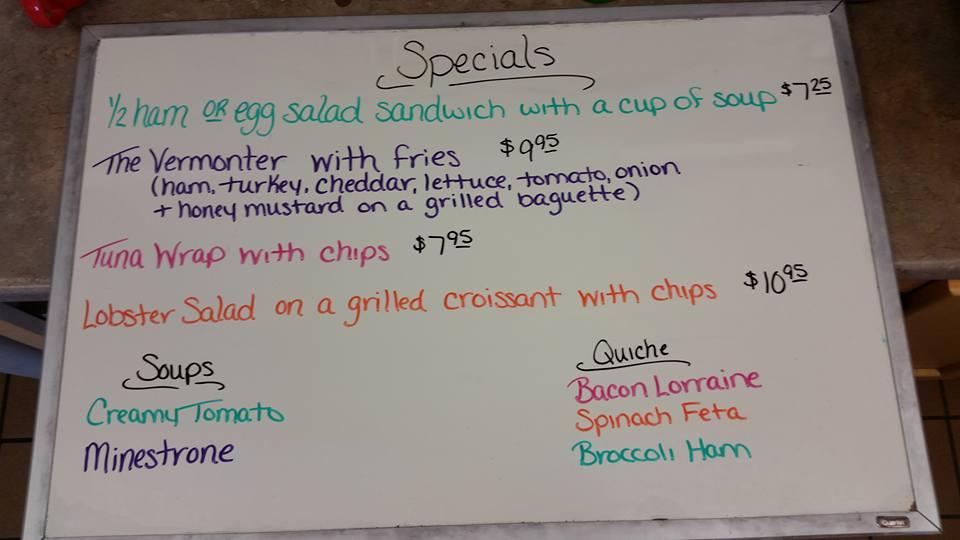 Specials
1/2 ham OR egg salad sandwich with a cup of soup $7.25
The Vermonter with fries $9.95
(ham, turkey, cheddar, lettuce, tomato, onion
+ honey mustard on a grilled baguette)
Tuna Wrap with chips $7.95
Lobster Salad on a grilled croissant with chips $10.95
Soups
Creamy Tomato
Minestrone
Quiche
Bacon Lorraine
Spinach Feta
Broccoli Ham
Quartet